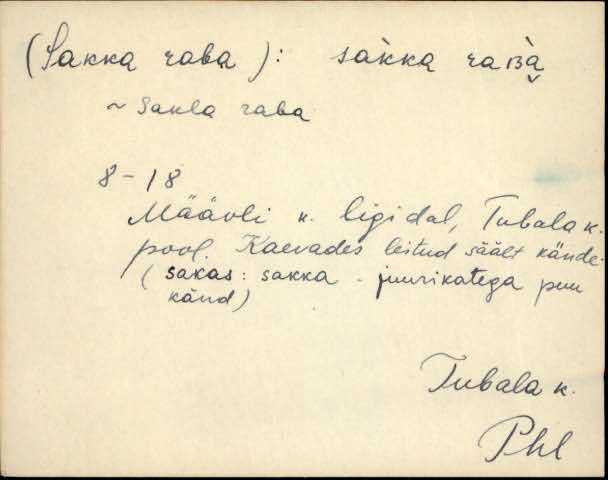 (Sakka raba): sàkka raʙà̬
~ Sakla raba
8-18
Määvli k. ligidal, Tubala k.
pool. Kaevades leitud säält kände.
(sakas: sakka - juurikatega puu
känd)
Tubala k.
Phl